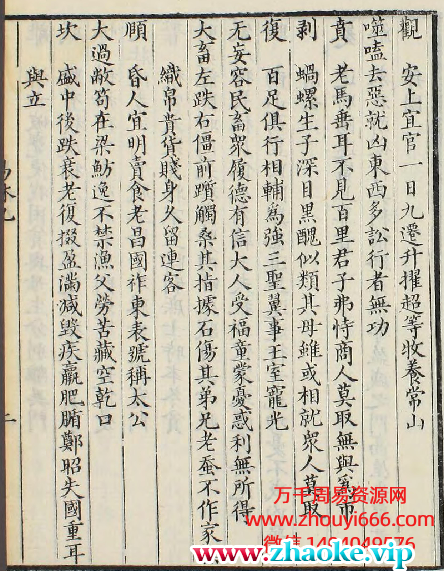 觀　安上宜官一日九遷升擢超等牧養常山
噬嗑去惡就凶東西多訟行者無功
賁　老馬垂耳不見百里君子弗恃商人莫取無與爲市
剥　蝸螺生子深目黑醜似類其母雖或相就衆人莫取
復　百足俱行相輔爲強三聖翼事王室寵光
无妄容民畜衆履德有信大人受福童蒙憂惑利無所得
大畜左跌右僵前躓觸桑其指據石傷其弟兄老蚕不作家
織帛貴貨賤身久留連客
頤　昏人宜明賣食老昌國祚東表號稱太公
大過敝笱在梁魴逸不禁漁父勞苦藏空乾口
坎　盛中後跌衰老復掇盈滿減毀疾羸肥腯鄭昭失國重耳
興立
万千周易资源网
www.zhouyi666.com
www.zhaoke.vip